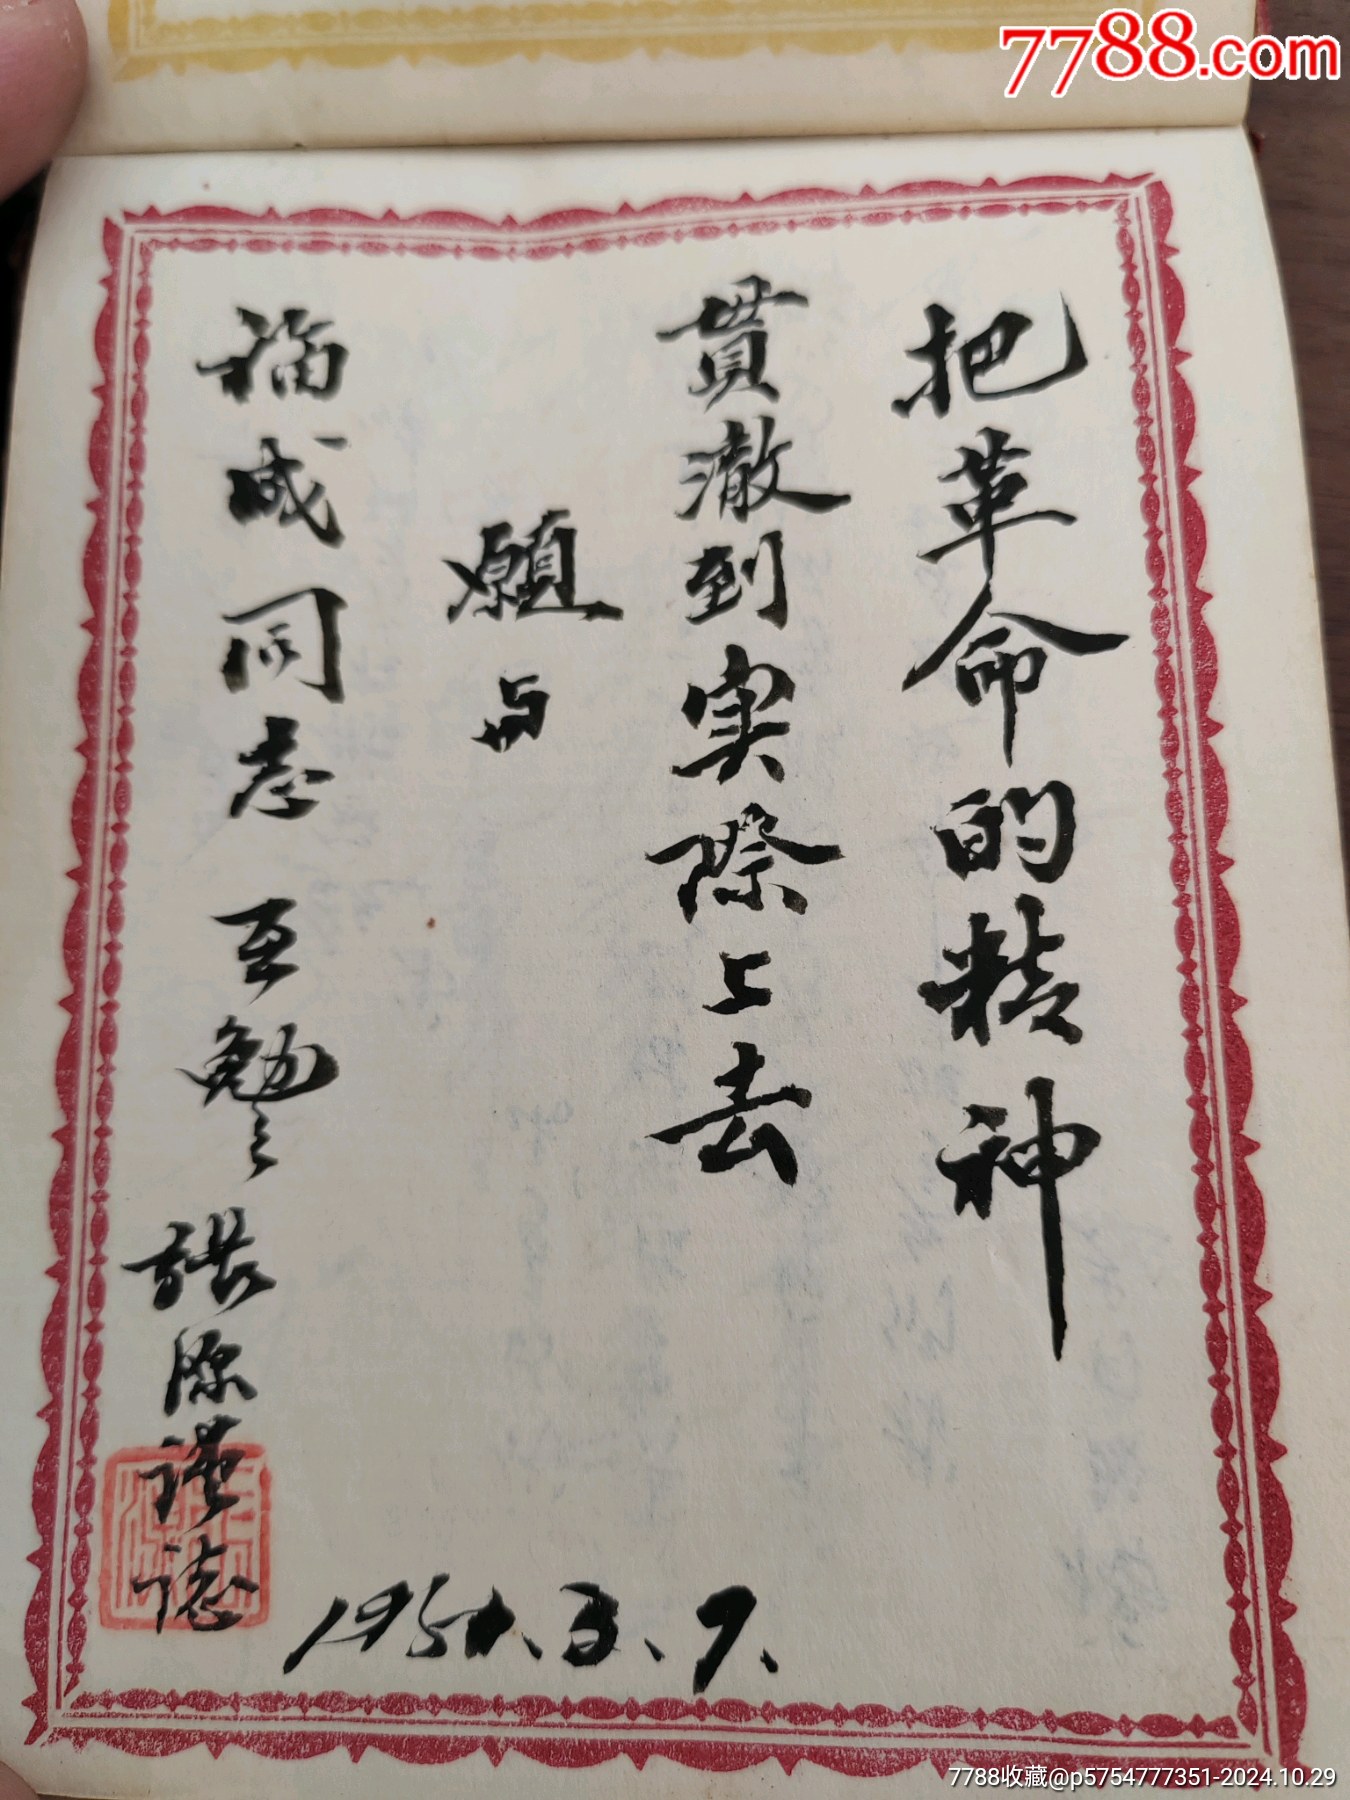 7788.com
把革命的精神
貫澈到实際上去
願与
福成同志互勉之
張源謹誌
1951.3.7.
7788收藏@p5754777351-2024.10.29